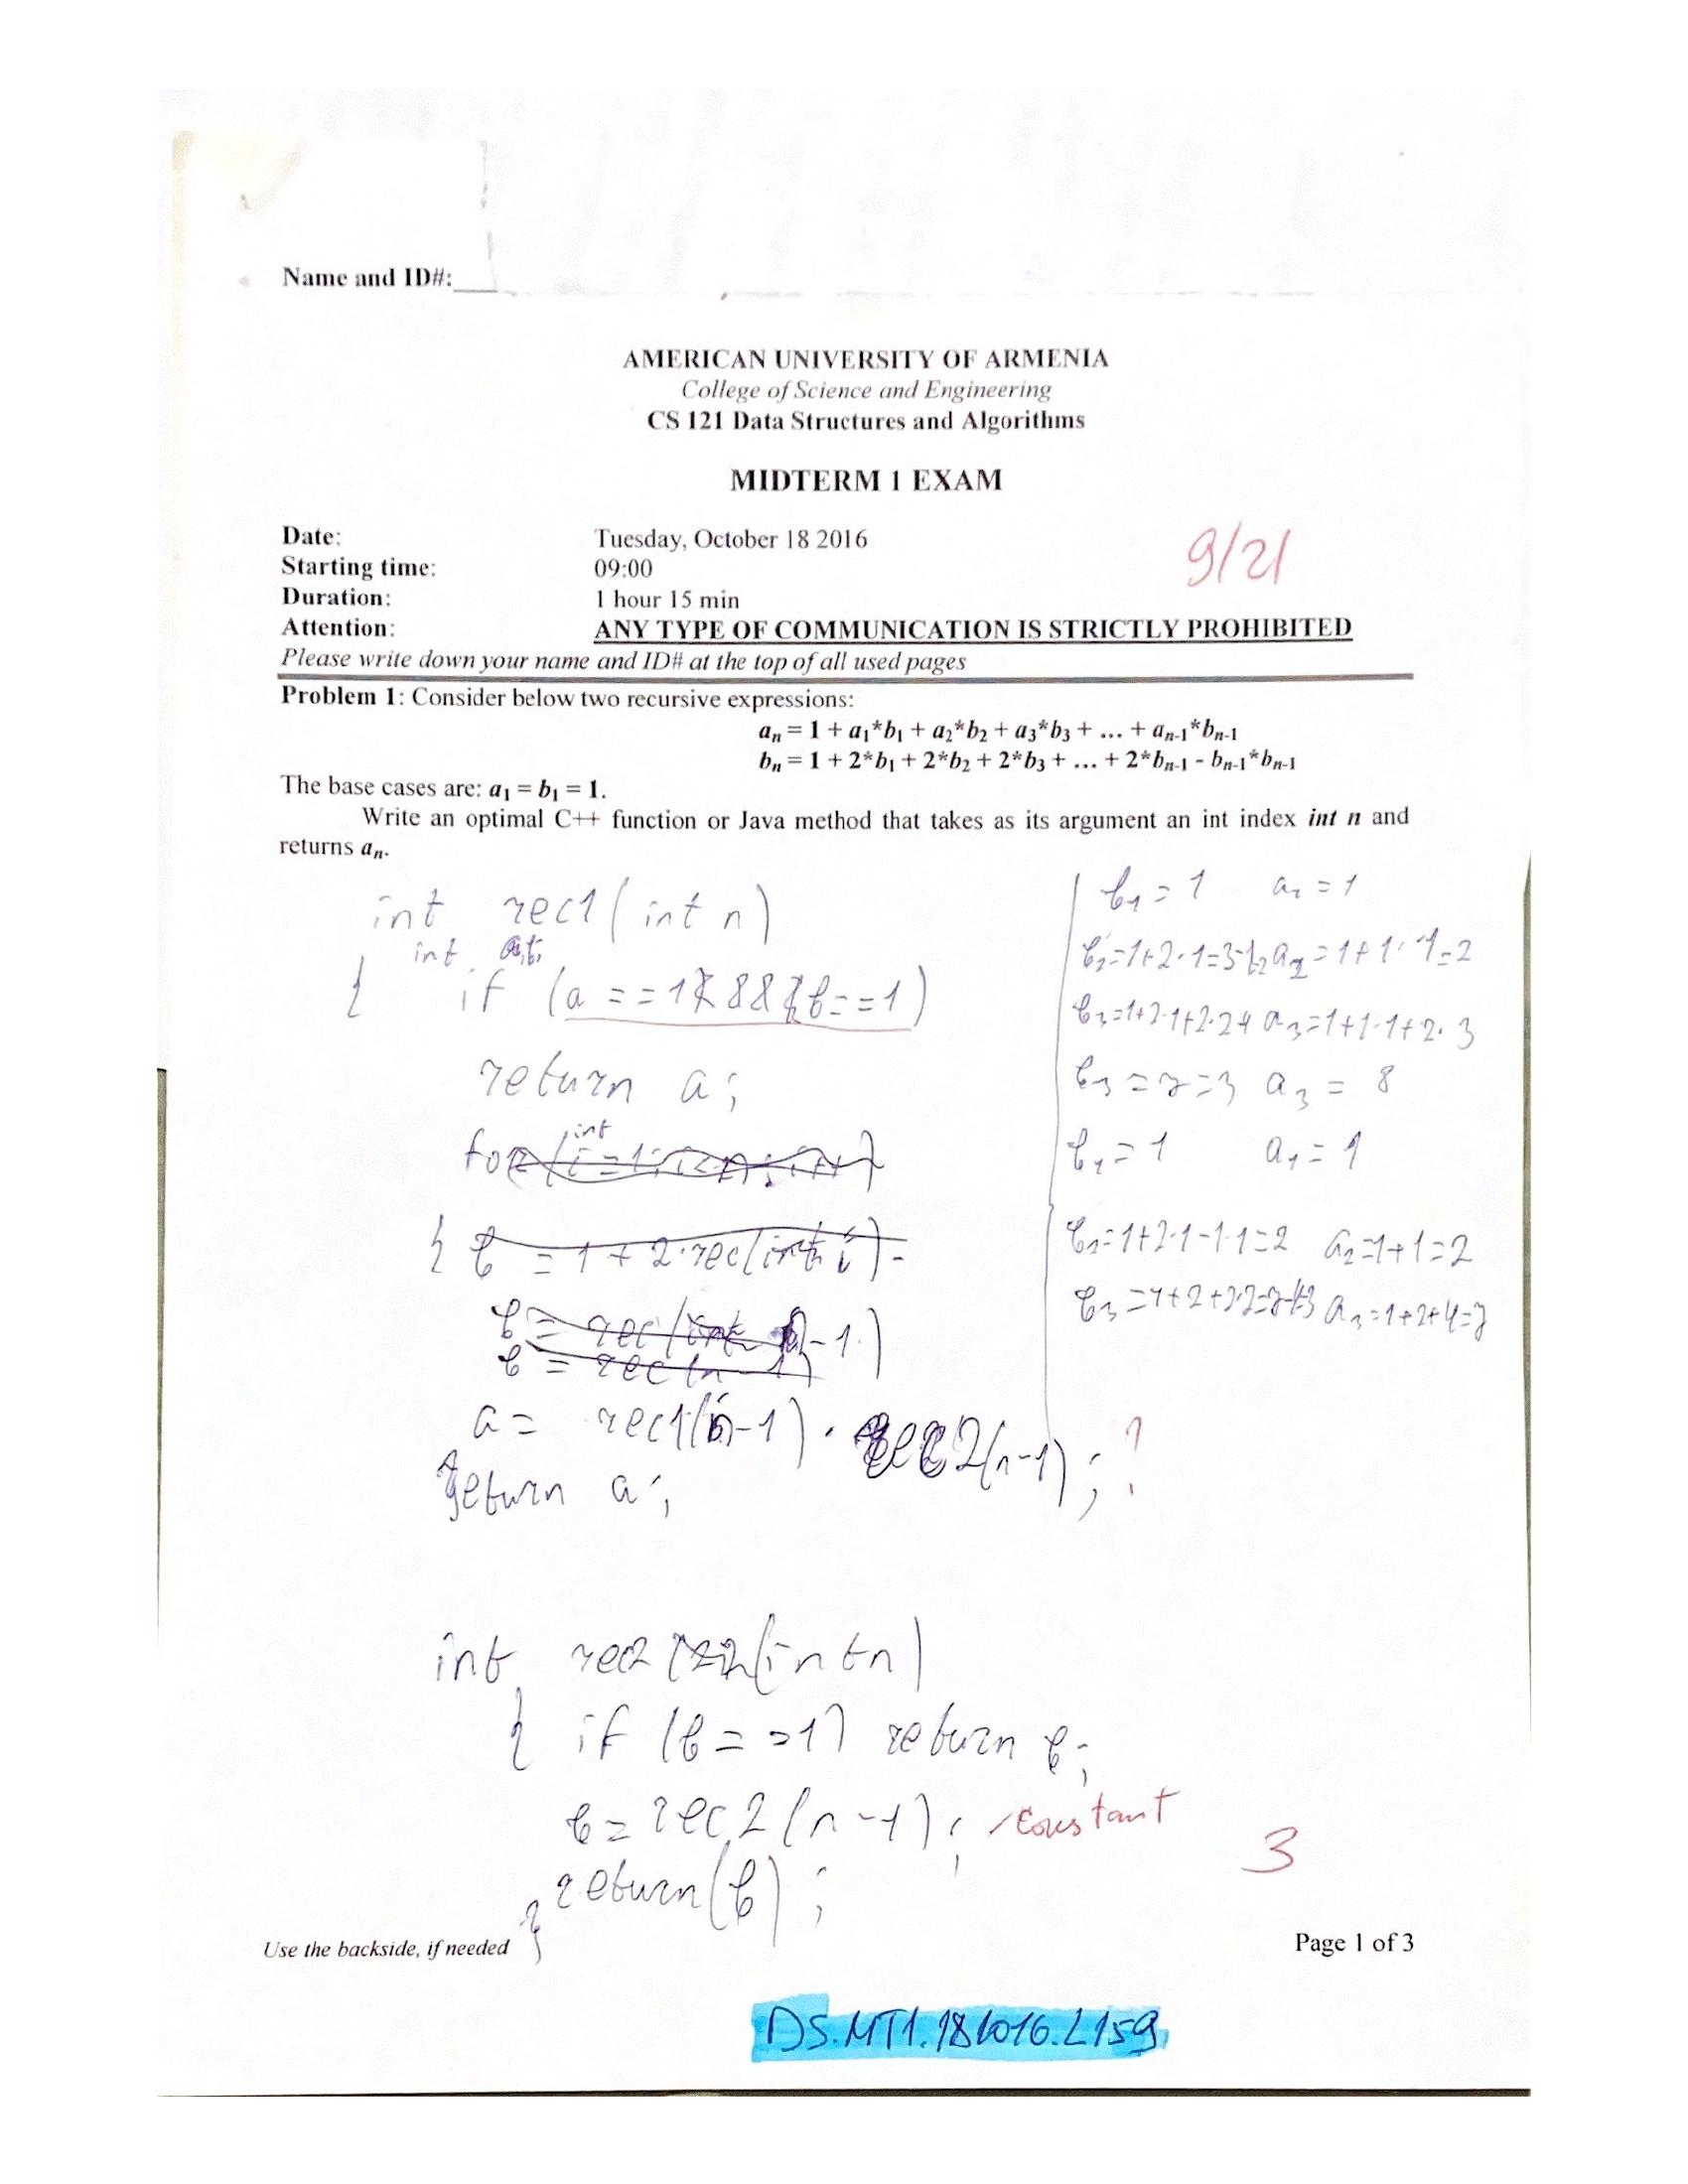 Name and ID#:
AMERICAN UNIVERSITY OF ARMENIA
College of Science and Engineering
CS 121 Data Structures and Algorithms
MIDTERM 1 EXAM
Date: Tuesday, October 18 2016
9/21
Starting time: 09:00
Duration: 1 hour 15 min
Attention: ANY TYPE OF COMMUNICATION IS STRICTLY PROHIBITED
Please write down your name and ID# at the top of all used pages
Problem 1: Consider below two recursive expressions:
aₙ = 1 + a₁*b₁ + a₂*b₂ + a₃*b₃ + ... + aₙ₋₁*bₙ₋₁
bₙ = 1 + 2*b₁ + 2*b₂ + 2*b₃ + ... + 2*bₙ₋₁ - bₙ₋₁*bₙ₋₁
The base cases are: a₁ = b₁ = 1.
Write an optimal C++ function or Java method that takes as its argument an int index int n and
returns aₙ.
int rec1(int n)
int
{ if (a==1 && b==1)
return a;
for (int i=1; i<n; i++)
{ b = 1 + 2·rec(int i) -
b = rec(int n-1)
b = rec(n-1)
a = rec1(n-1) · rec2(n-1); ?
return a;
b₁ = 1 a₁ = 1
b₂=1+2·1=3-1=2 a₂=1+1·1=2
b₃=1+2·1+2·2-4 a₃=1+1·1+2·3
b₃=7=3 a₃ = 8
b₁ = 1 a₁ = 1
b₂=1+2·1-1·1=2 a₂=1+1=2
b₃=1+2+2·2=7-4=3 a₃=1+2+4=7
int rec2 (int n)
{ if (b==1) return b;
b = rec2(n-1); constant
return(b);
}
3
Use the backside, if needed
Page 1 of 3
DS.MT1.181016.L159